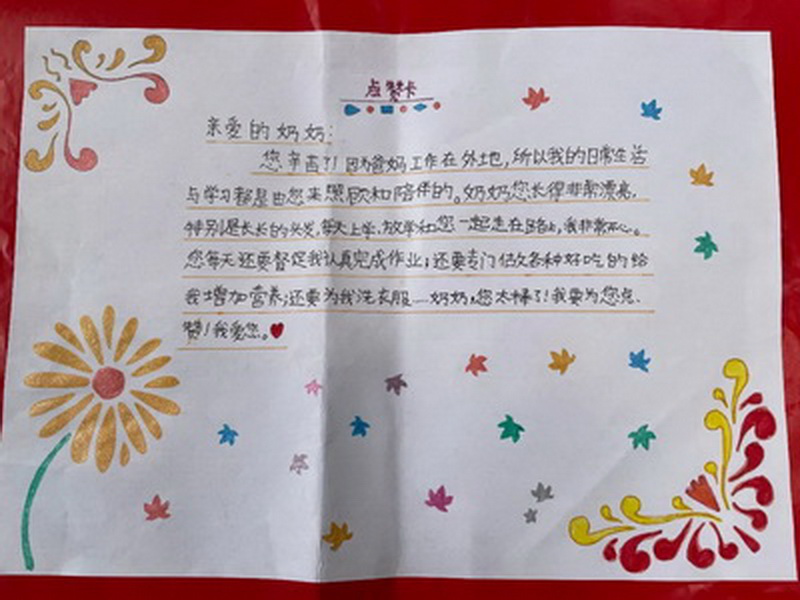 点赞卡
亲爱的奶奶:
您辛苦了!因为爸妈工作在外地,所以我的日常生活
与学习都是由您来照顾和陪伴的。奶奶您长得非常漂亮,
特别是长长的头发,每天上学,放学和您一起走在路上,我非常开心。
您每天还要督促我认真完成作业;还要专门做各种好吃的给
我增加营养;还要为我洗衣服……奶奶,您太棒了!我要为您点
赞!我爱您。